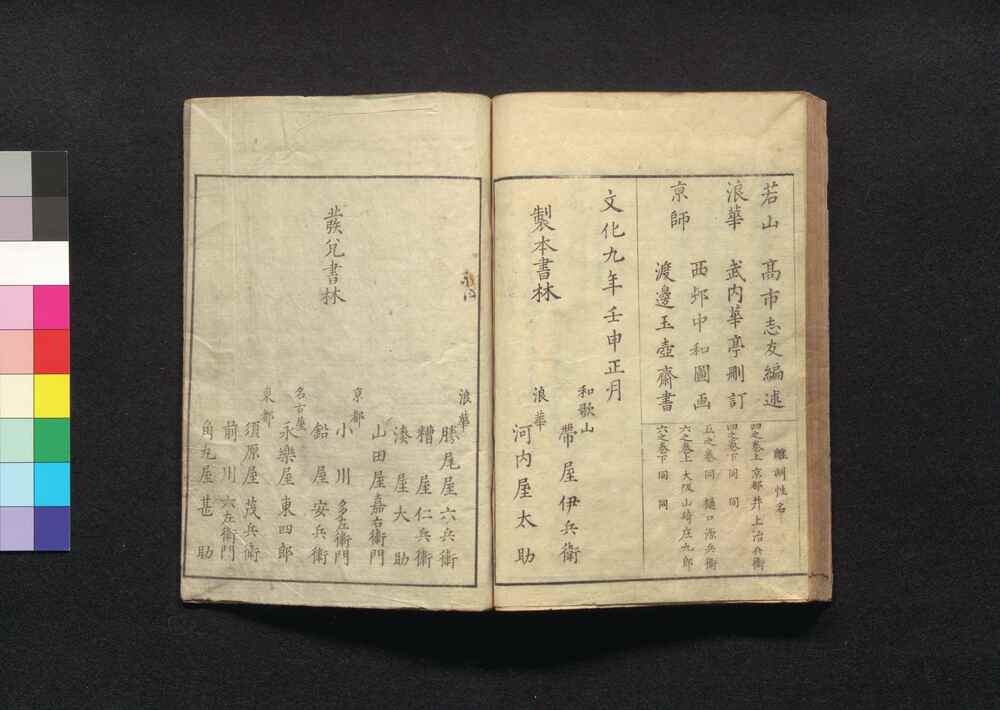 若山　高市志友編述
浪華　武内華亭刪訂
西邨中和圖画
京師
渡邊玉壺齋書
雕刻姓名
四之巻上　京都井上治兵衛
四之巻下　同　同
五之巻　同　樋口源兵衛
六之巻上　大阪山崎庄九郎
六之巻下　同　同
文化九年壬申正月
製本書林
和歌山
帶屋伊兵衛
浪華
河内屋太助
發兌書林
浪華
勝尾屋六兵衛
糟屋仁兵衛
湊屋大助
山田屋嘉右衛門
京都
小川多左衛門
鉛屋安兵衛
名古屋
永樂屋東四郎
東都
須原屋茂兵衛
前川六左衛門
角丸屋甚助